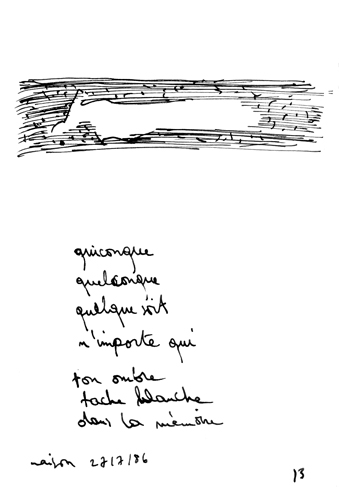 quiconque
quelconque
quelque soit
n'importe qui
ton ombre
tache blanche
dans la mémoire
maison 27/7/86
13